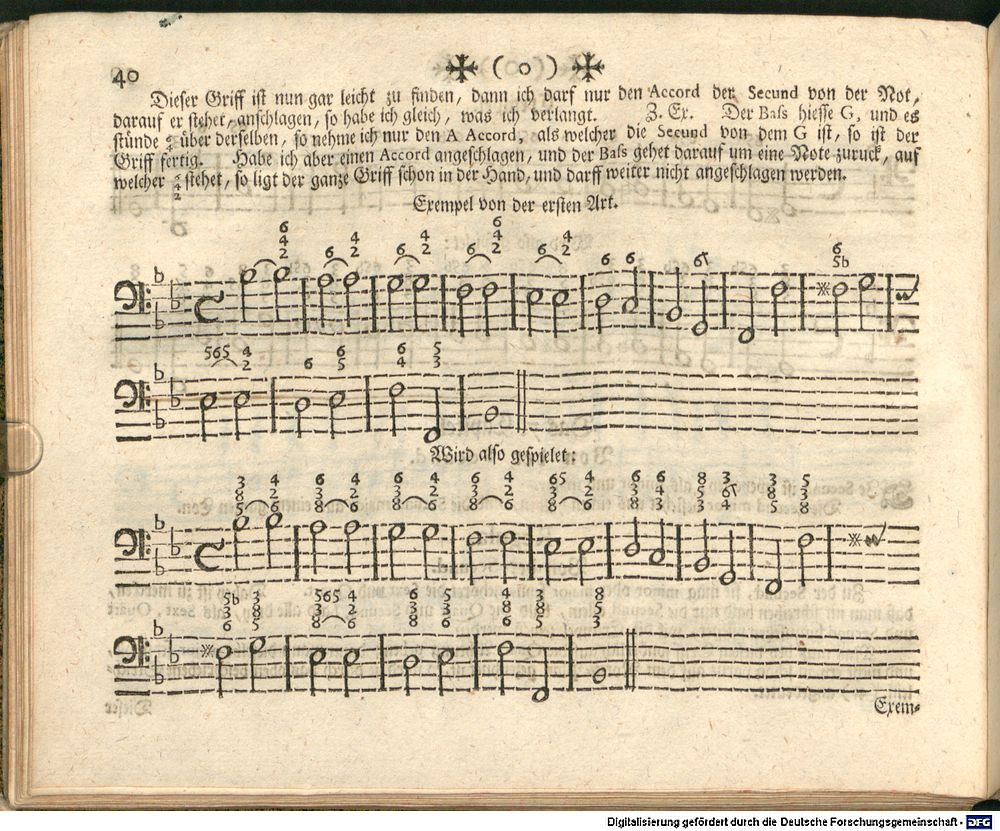 40 ( o )
Dieser Griff ist nun gar leicht zu finden, dann ich darf nur den Accord der Secund von der Not,
darauf er stehet, anschlagen, so habe ich gleich, was ich verlangt. Z. Ex. Der Bass hiesse G, und es
stünde über derselben, so nehme ich nur den A Accord, als welcher die Secund von dem G ist, so ist der
Griff fertig. Habe ich aber einen Accord angeschlagen, und der Bass gehet darauf um eine Note zuruck, auf
welcher 6 4 2 stehet, so ligt der ganze Griff schon in der Hand, und darff weiter nicht angeschlagen werden.
Exempel von der ersten Art.
Wird also gespielet:
Exem-
Digitalisierung gefördert durch die Deutsche Forschungsgemeinschaft - DFG